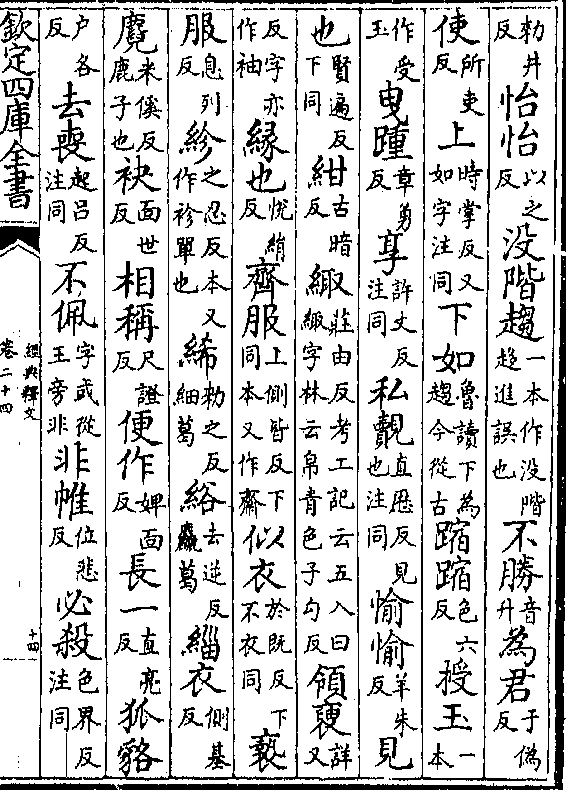 勑井反怡怡以之反没階趨一本作没階趨進誤也不勝音升為君于偽反
使所吏反上時掌反又如字注同下如魯讀下為趨今從古蹜蹜色六反授玉一本
作受玉曳踵章勇反享許丈反注同私覿直歷反見也注同愉愉羊朱反見
賢遍反也下同紺古暗反緅莊由反考工記云五入曰緅字林云帛青色子勾反領䄂詳又
反字亦作袖緣也悦絹反齊服上側皆反下同本又作齋似衣於既反下不衣同褻
服息列反紾之忍反本又作袗單也絺勑之反細葛綌去逆反麤葛緇衣側基反
麑米傒反鹿子也袂面世反相稱尺證反便作婢面反長一直亮反狐貉
户各反去喪起吕反注同不佩字或從王旁非非帷位悲反必殺色界反注同
欽定四庫全書
經典釋文
卷二十四
十四